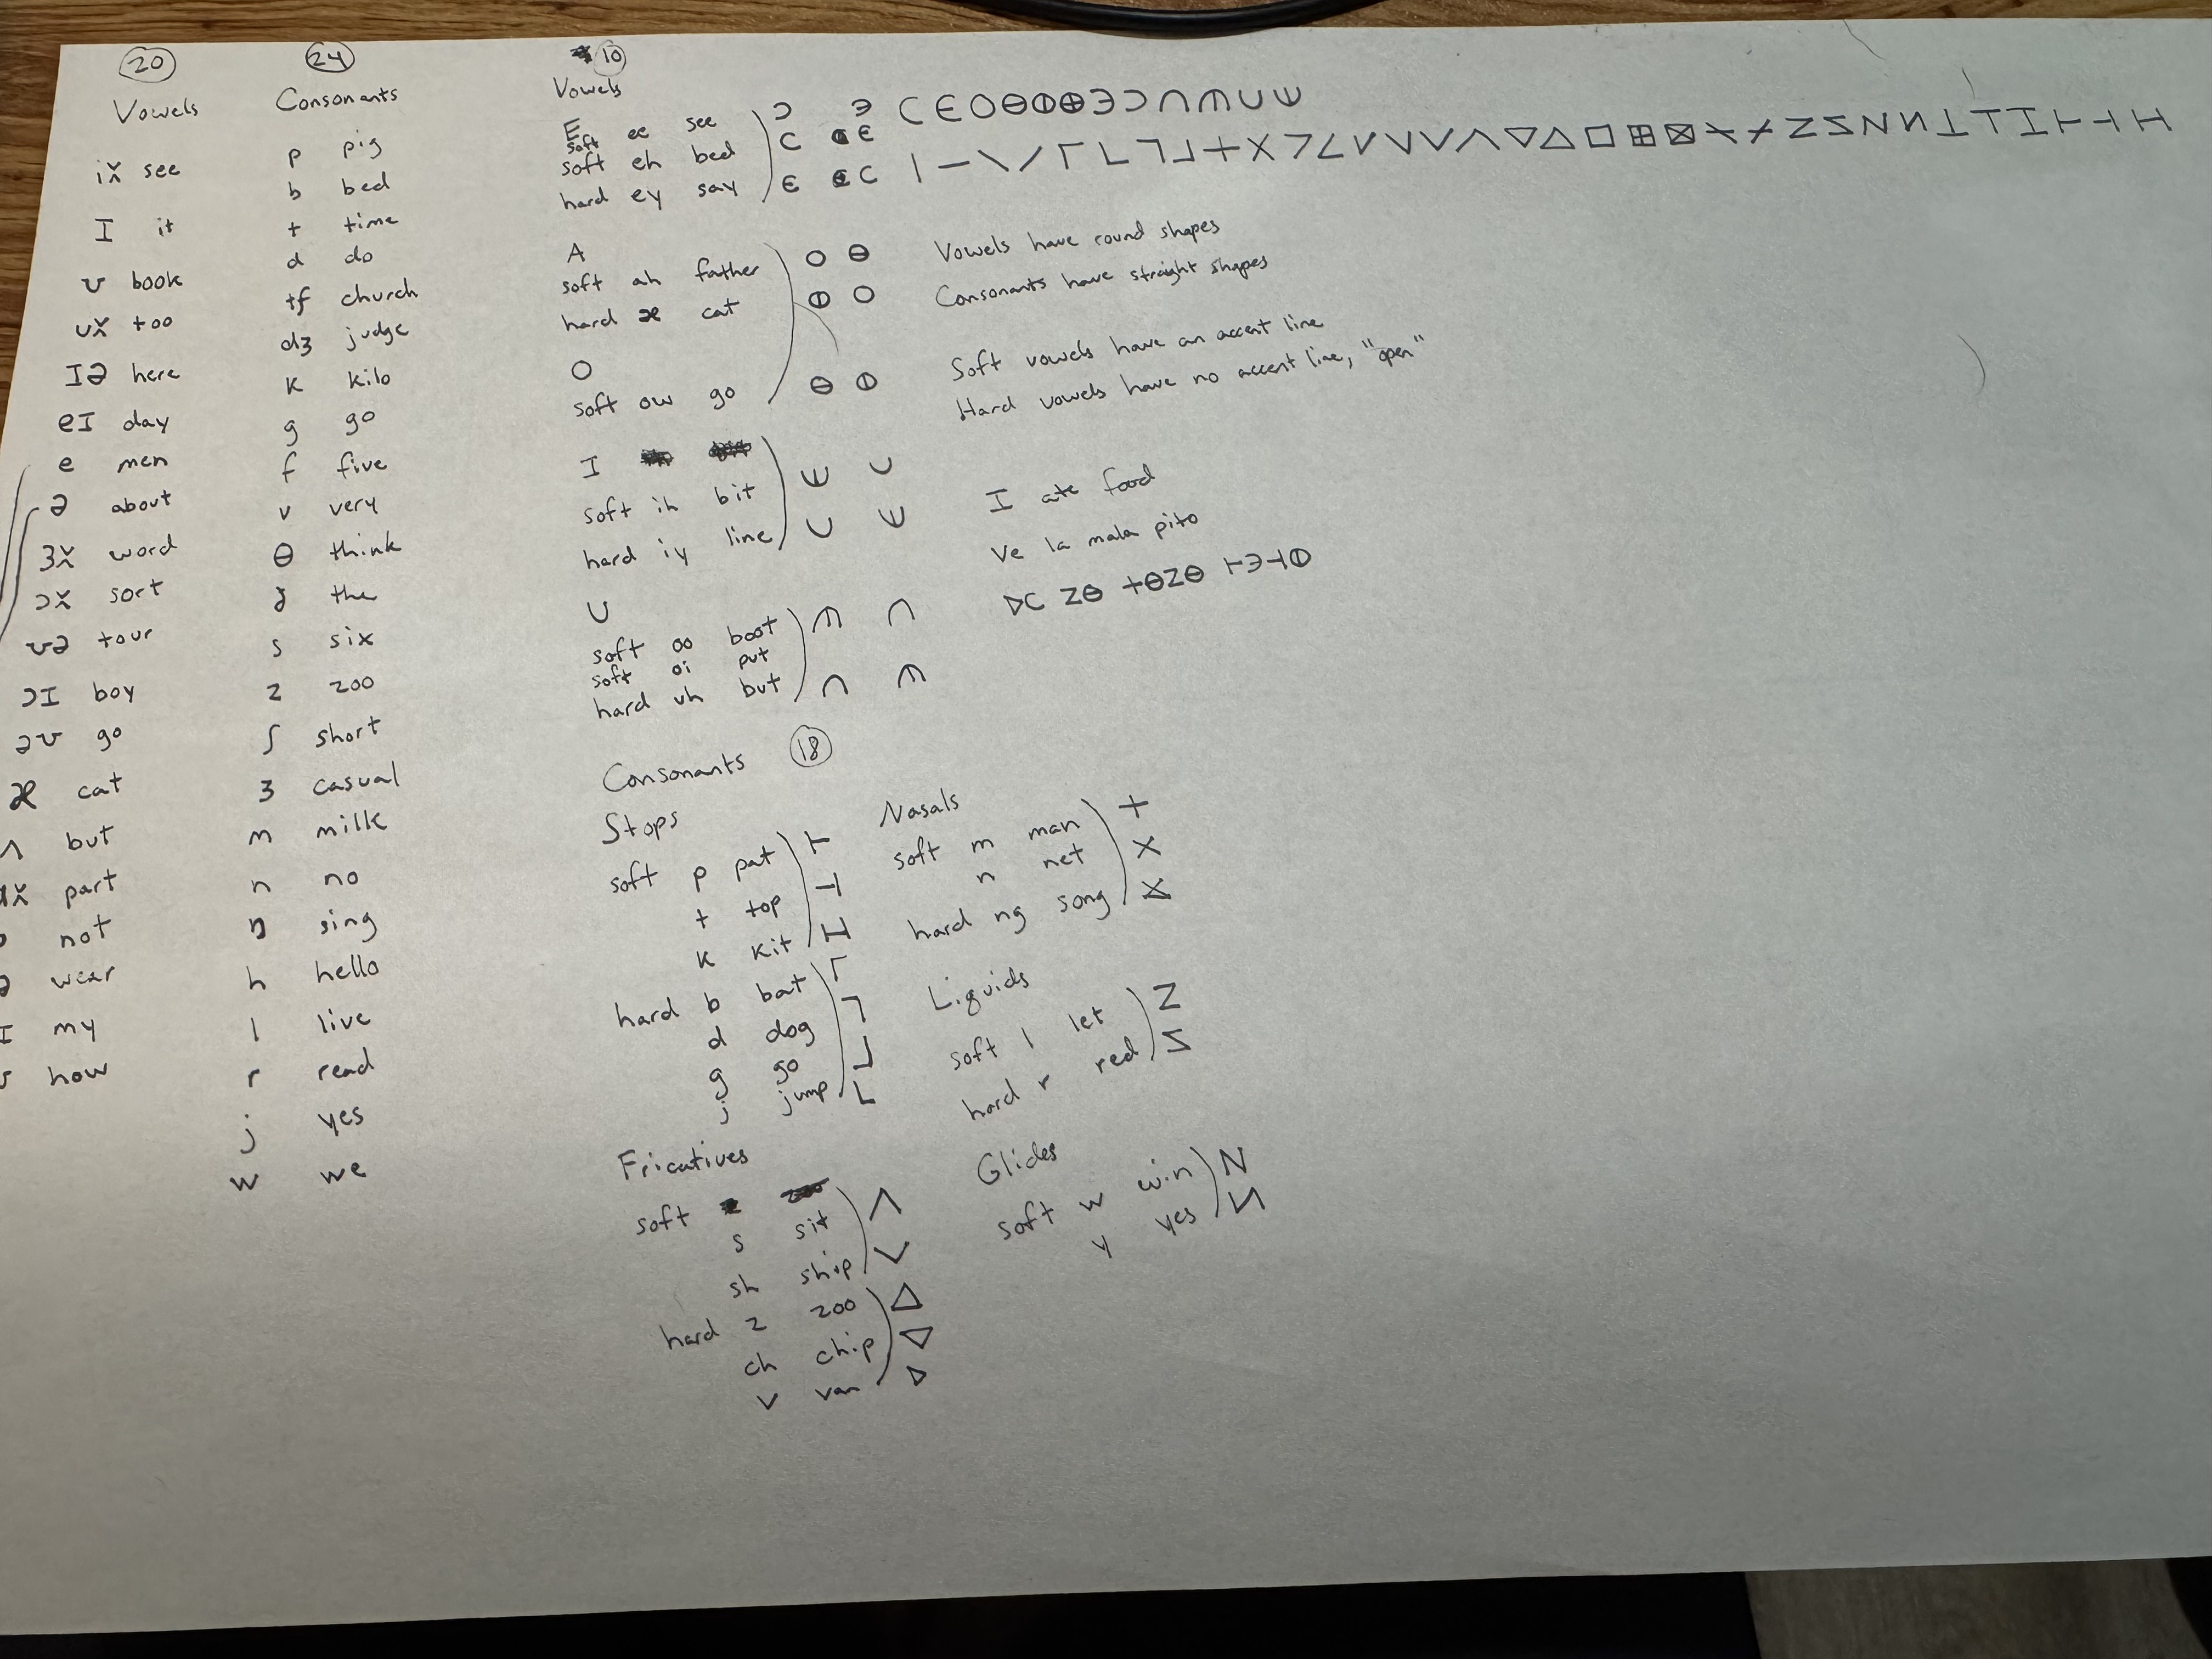 20
Vowels
iː see
I it
ʊ book
uː too
Iə here
eI day
e men
ə about
3ː word
ɔː sort
ʊə tour
ɔI boy
əʊ go
æ cat
ʌ but
ɑː part
not
ə wear
I my
ʊ how
24
Consonants
p pig
b bed
t time
d do
tʃ church
dʒ judge
k kilo
g go
f five
v very
θ think
ð the
s six
z zoo
ʃ short
ʒ casual
m milk
n no
ŋ sing
h hello
l live
r read
j yes
w we
10
Vowels
E
soft ee see Ɔ Э
soft eh bed C Є
hard ey say Є C
A
soft ah father O ⊖
hard æ cat ⦶ O
O
soft ow go ⊖ ⦶
I
soft ih bit Ш U
hard iy line U Ш
U
soft oo boot ⋒ ∩
soft oi put
hard uh but ∩ ⋒
C Є O ⊖ ⦶ ⊕ Э Ɔ ∩ ⋒ U Ш
Vowels have round shapes
Consonants have straight shapes
Soft vowels have an accent line
Hard vowels have no accent line, "open"
I ate food
Ve la mala pito
▷C Z⊖ +⊖Z⊖ ⊢Э⊣⦶
Consonants 18
Stops
soft p pat ⊢
t top ⊣
k kit
hard b bat Γ
d dog ⅂
g go ⅃
j jump L
Fricatives
soft
s sit Λ
sh ship V
hard z zoo △
ch chip ▽
v van ▷
Nasals
soft m man +
n net X
hard ng song
Liquids
soft l let Z
hard r red
Glides
soft w win N
y yes И